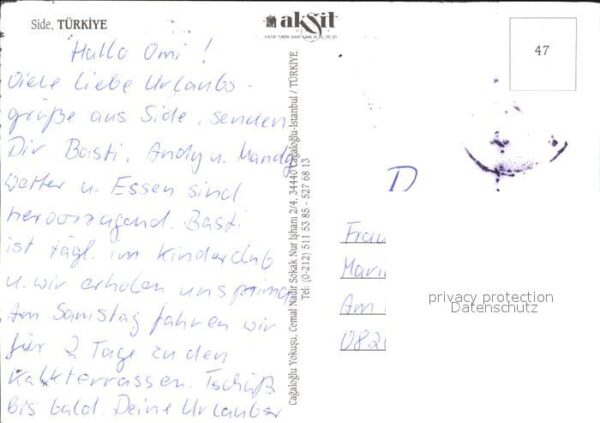 Side, TÜRKİYE
Hallo Omi!
Viele liebe Urlaubs-
grüße aus Side, senden
Dir Basti, Andy u. Mandy
Wetter u. Essen sind
hervorragend. Basti
ist tägl. im Kinderclub
u. wir erholen uns prima
Am Samstag fahren wir
für 2 Tage zu den
Kalkterrassen. Tschüß
bis bald. Deine Urlauber
akşit
Cağaloğlu Yokuşu, Cemal Nadir Sokak Nur İşhanı 2/4, 34440 Cağaloğlu-İstanbul / TÜRKİYE
Tel: (0-212) 511 53 85 - 527 68 13
47
D
Frau
Am
privacy protection
Datenschutz